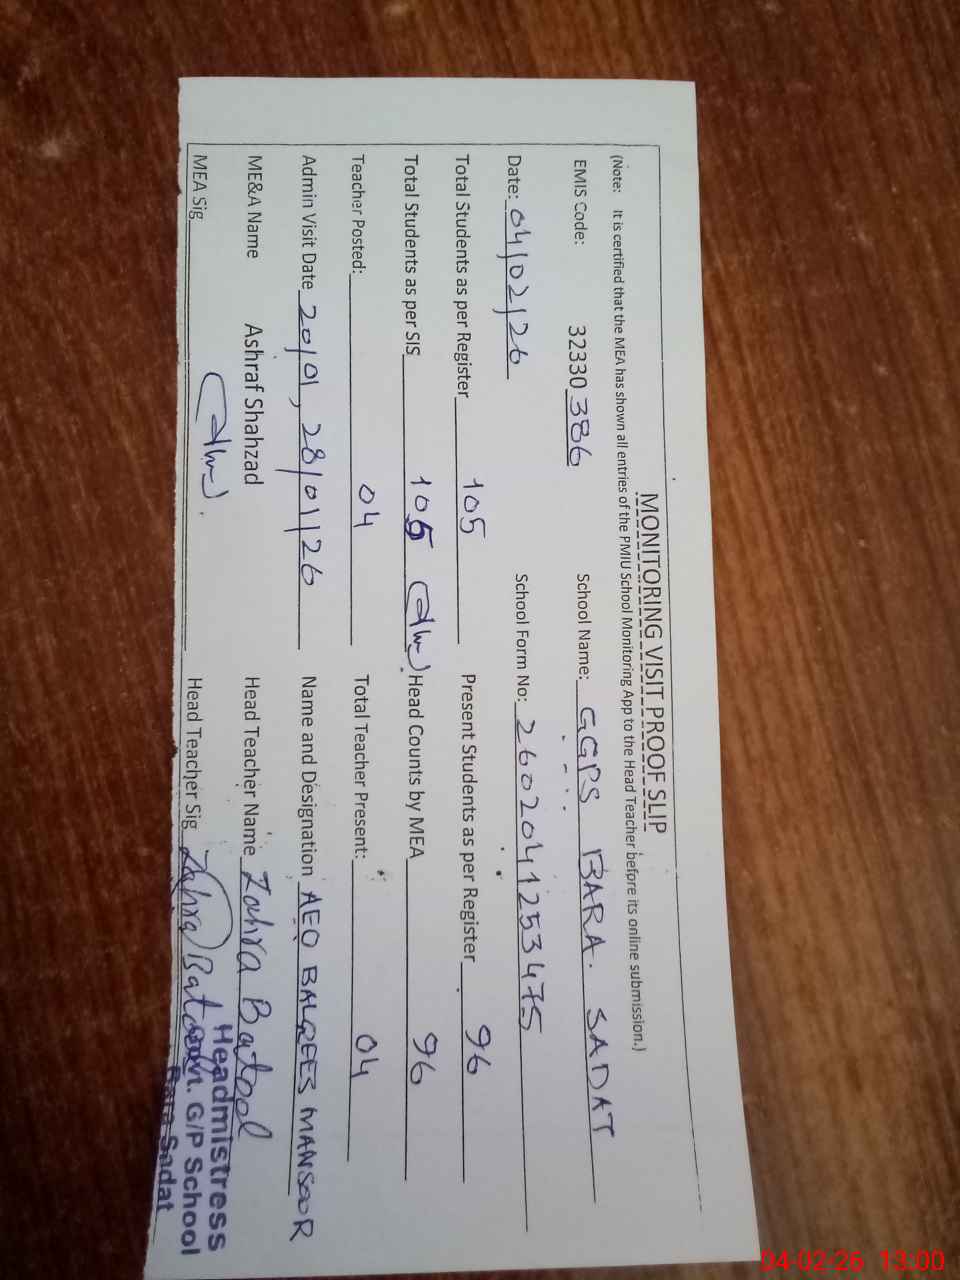 MONITORING VISIT PROOF SLIP
(Note: It is certified that the MEA has shown all entries of the PMIU School Monitoring App to the Head Teacher before its online submission.)
EMIS Code: 32330 386 School Name: GGPS BARA. SADAT
Date: 04/02/26 School Form No: 2602041253475
Total Students as per Register 105 Present Students as per Register 96
Total Students as per SIS 105 Head Counts by MEA 96
Teacher Posted: 04 Total Teacher Present: 04
Admin Visit Date 20/01, 28/01/26 Name and Designation AEO BALQEES MANSOOR
ME&A Name Ashraf Shahzad Head Teacher Name Zahra Batool
MEA Sig Head Teacher Sig Zahra Batool
Headmistress
Govt. G/P School
Bara Sadat
04-02-26 13:00